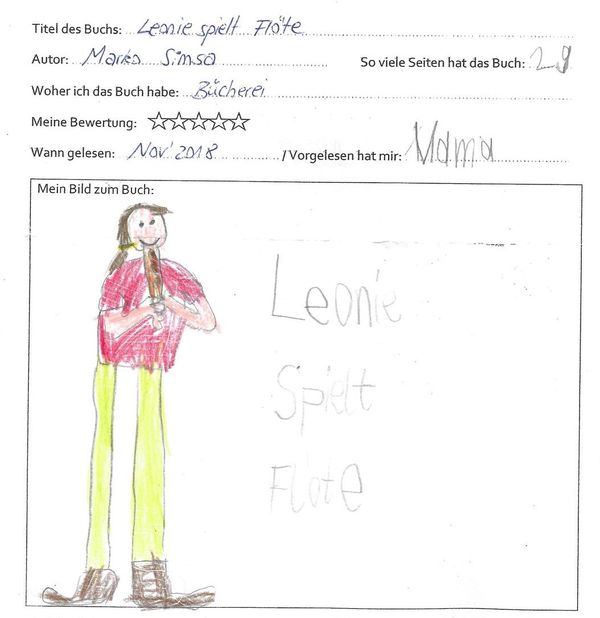 Titel des Buchs: Leonie spielt Flöte
Autor: Marko Simsa So viele Seiten hat das Buch: 29
Woher ich das Buch habe: Bücherei
Meine Bewertung: ☆☆☆☆☆
Wann gelesen: Nov' 2018 / Vorgelesen hat mir: Mama
Mein Bild zum Buch:
Leonie
Spielt
Flöte